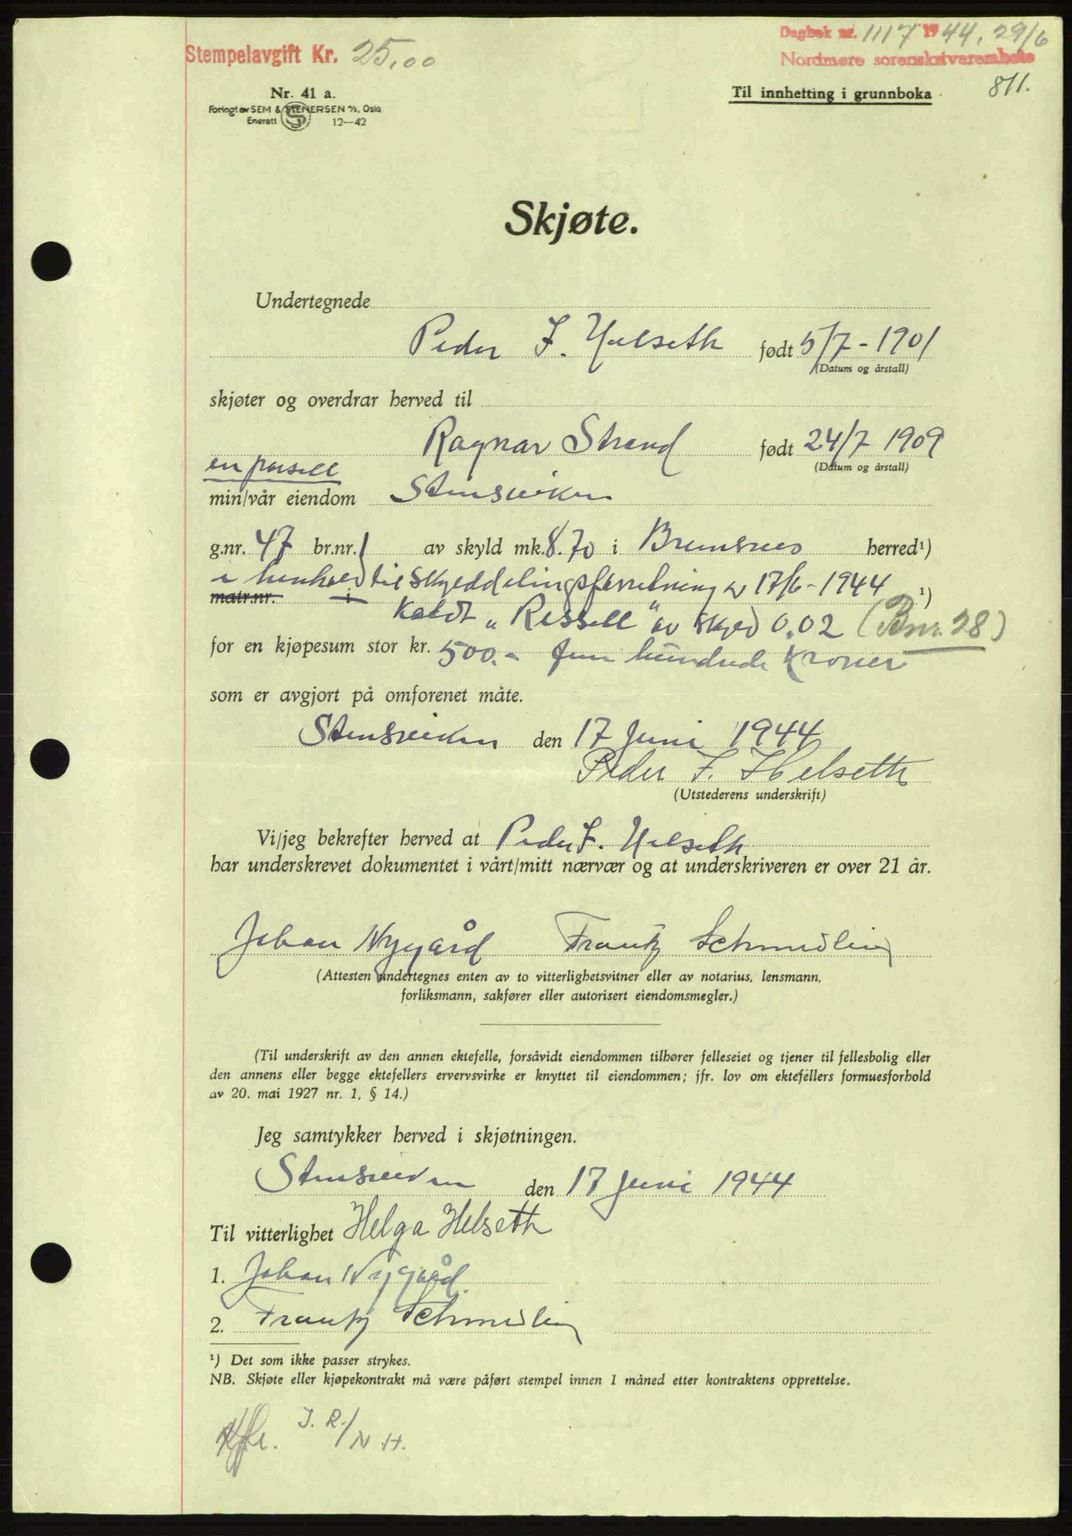 Stempelavgift Kr. 25,00
Dagbok nr. 1117 1944, 29/6
Nordmøre sorenskriverembete
811.
Nr. 41 a.
Forlagt av SEM & STENERSEN A/S, Oslo
Enerett S 12—42
Til innhetting i grunnboka
Skjøte.
Undertegnede
Peder F. Helseth født 5/7 - 1901
(Datum og årstall)
skjøter og overdrar herved til
Ragnar Strand født 24/7 1909
(Datum og årstall)
en parsell
min/vår eiendom Stensviken
g.nr. 47 br.nr. 1 av skyld mk. 8.70 i Bremsnes herred¹)
i henhold til skylddelingsforretning av 17/6 - 1944
matr.nr. i ¹)
kaldt „Ressell" av skyld 0.02 (Bnr. 28)
for en kjøpesum stor kr. 500.- fem hundrede kroner
som er avgjort på omforenet måte.
Stensviken den 17 Juni 1944
Peder F. Helseth
(Utstederens underskrift)
Vi/jeg bekrefter herved at Peder F. Helseth
har underskrevet dokumentet i vårt/mitt nærvær og at underskriveren er over 21 år.
Johan Nygård Frantz Schmidling
(Attesten undertegnes enten av to vitterlighetsvitner eller av notarius, lensmann,
forliksmann, sakfører eller autorisert eiendomsmegler.)
(Til underskrift av den annen ektefelle, forsåvidt eiendommen tilhører felleseiet og tjener til fellesbolig eller
den annens eller begge ektefellers ervervsvirke er knyttet til eiendommen; jfr. lov om ektefellers formuesforhold
av 20. mai 1927 nr. 1, § 14.)
Jeg samtykker herved i skjøtningen.
Stensviken den 17 Juni 1944
Til vitterlighet Helga Helseth
1. Johan Nygård.
2. Frantz Schmidling
¹) Det som ikke passer strykes.
NB. Skjøte eller kjøpekontrakt må være påført stempel innen 1 måned etter kontraktens opprettelse.
J. R./N H.